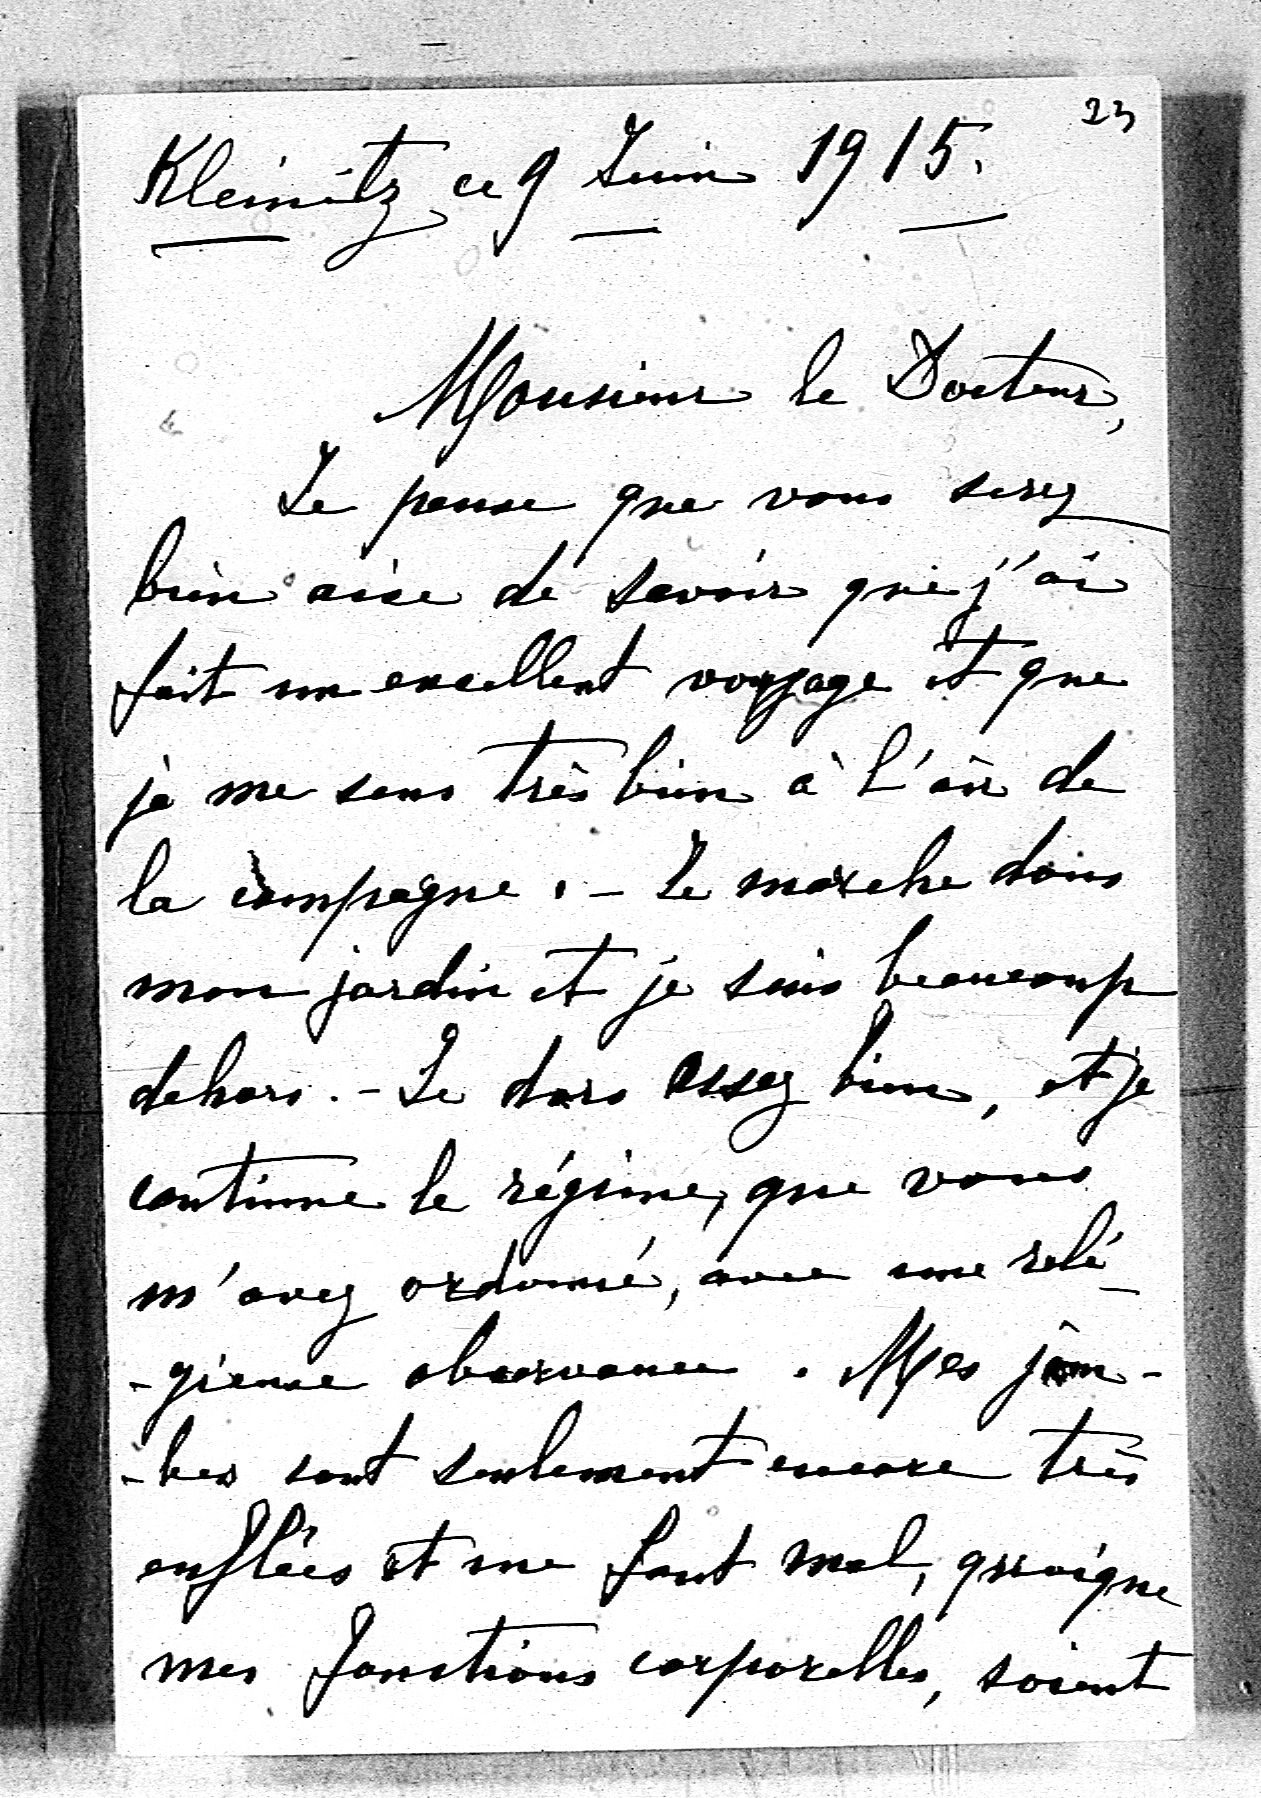 23
Kleinitz ce 9 Juin 1915.
Monsieur le Docteur,
Je pense que vous serez
bien aise de savoir que j'ai
fait un excellent voyage et que
je me sens très bien à l'air de
la campagne. - Je marche dans
mon jardin et je suis beaucoup
dehors. - Je dors assez bien, et je
continue le régime, que vous
m'avez ordonné, avec une relé-
-gieuse observance. Mes jam-
-bes sont seulement encore très
enflées et me font mal, quoique
mes fonctions corporelles, soient